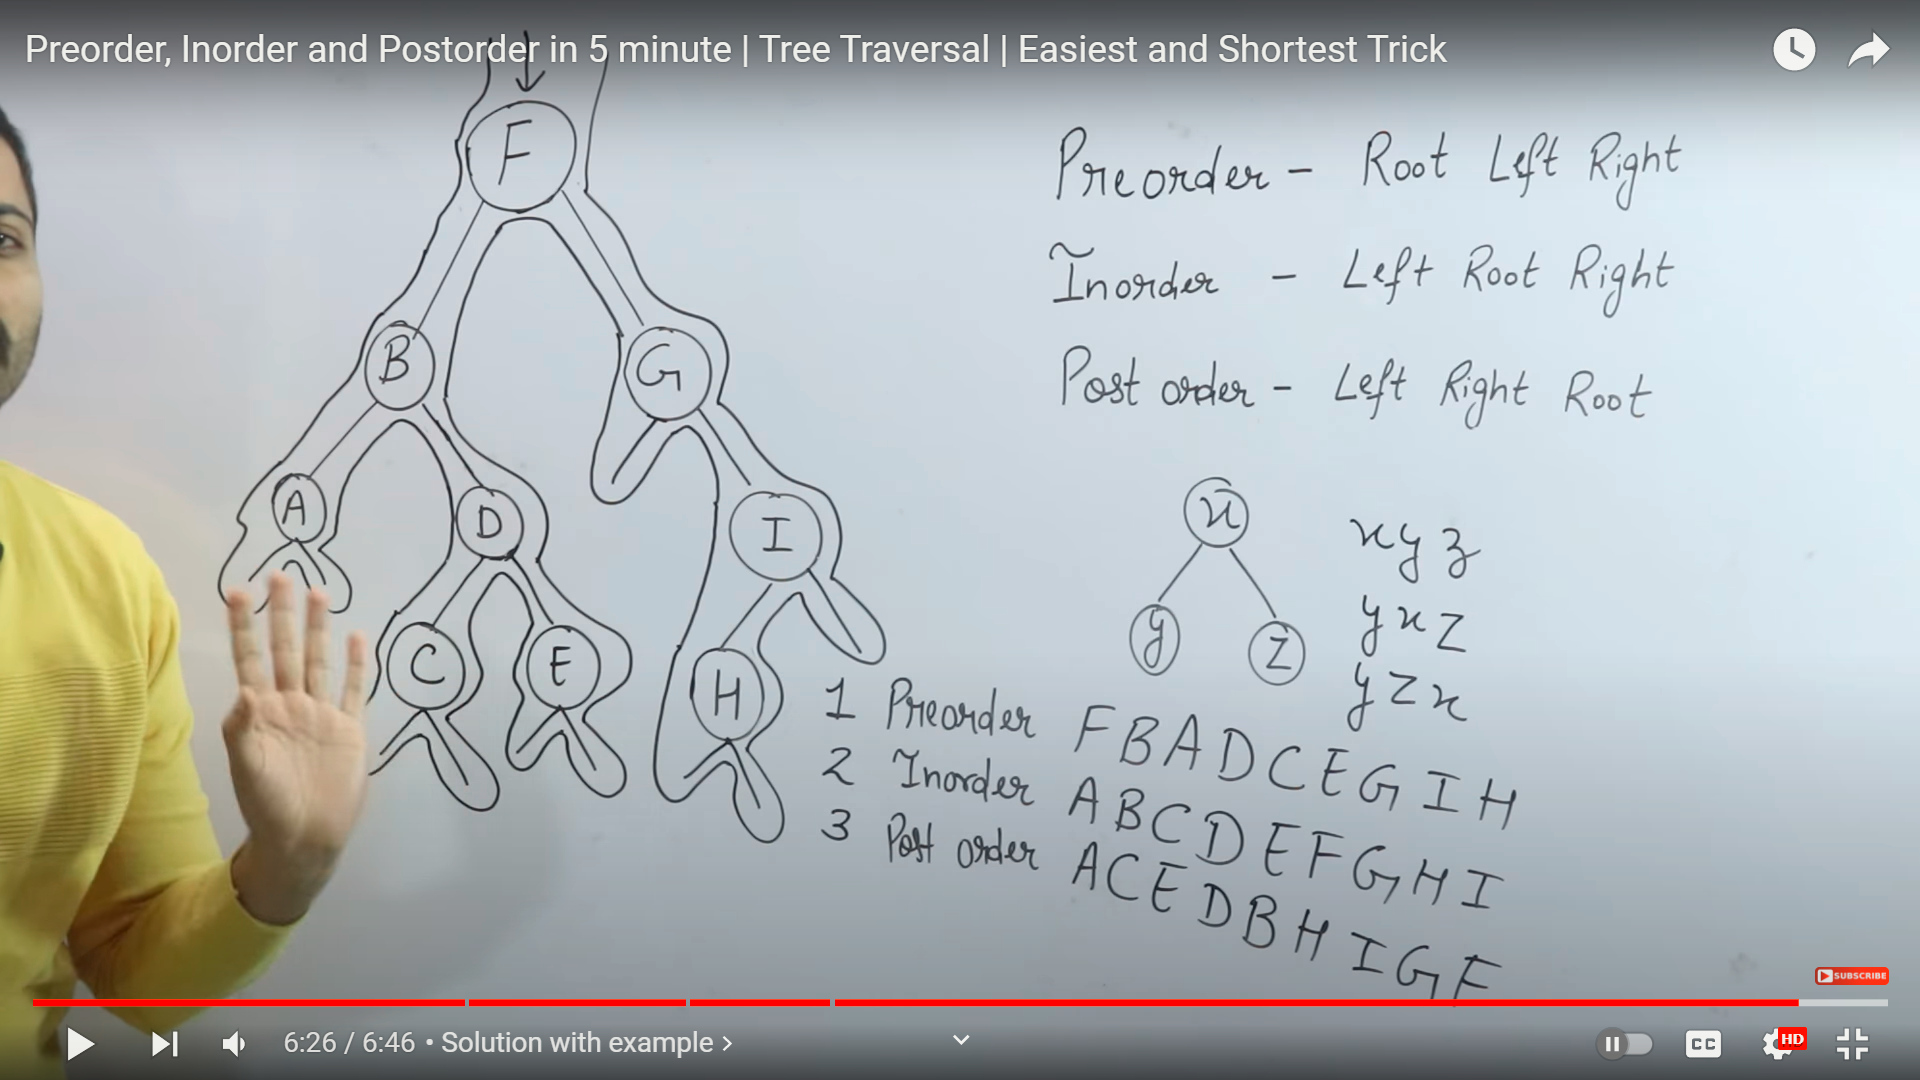 Preorder, Inorder and Postorder in 5 minute | Tree Traversal | Easiest and Shortest Trick
F
Preorder - Root Left Right
Inorder - Left Root Right
B
G
Post order - Left Right Root
A
D
I
x
x y z
y
z
y x z
C
E
H
y z x
1 Preorder F B A D C E G I H
2 Inorder A B C D E F G H I
3 Post order A C E D B H I G F
SUBSCRIBE
6:26 / 6:46 • Solution with example >
CC
HD